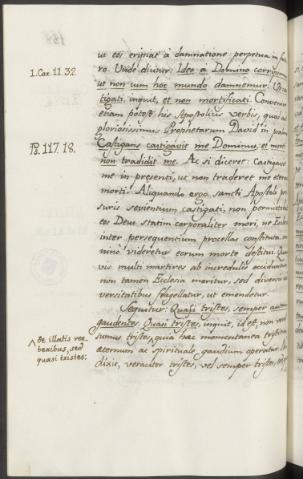 1. Cor. 11. 32.
Ps. 117. 18.
de illatis ver
beribus, sed
quasi tristes;
ut eos eripiat à damnatione perpetua in futu
ro. Unde dicitur: Ideo à Domino corripimur
ut non cum hoc mundo damnemur.
tigati, inquit, et non mortificati. Convenire
etiam potest his Apostolicis verbis, quod ait
gloriosissimus Prophetarum David in psalmo
Castigans castigavit me Dominus, et morti
non tradidit me. Ac si diceret: Castigavit
me in præsenti, ut non traderet me æternæ
morti. Aliquando ergo sancti Apostoli
suris sevientum castigati, non permittit
eos Deus statim corporaliter mori, ne Ecclesia
inter persequentium procellas constituta
nino videretur eorum morte destitui. Quam
vis multi martires ab incredulis occiduntur
non tamen Ecclesia moritur, sed diversis ad
versitatibus flagellatur, ut emendetur.
Sequitur: Quasi tristes, semper autem
gaudentes. Quasi tristes, inquit, id est, non
sumus tristes, quia hæc momentanea tristitia
æternum ac spirituale gaudium operatur.
dixit, veraciter tristes, vel semper tristes,